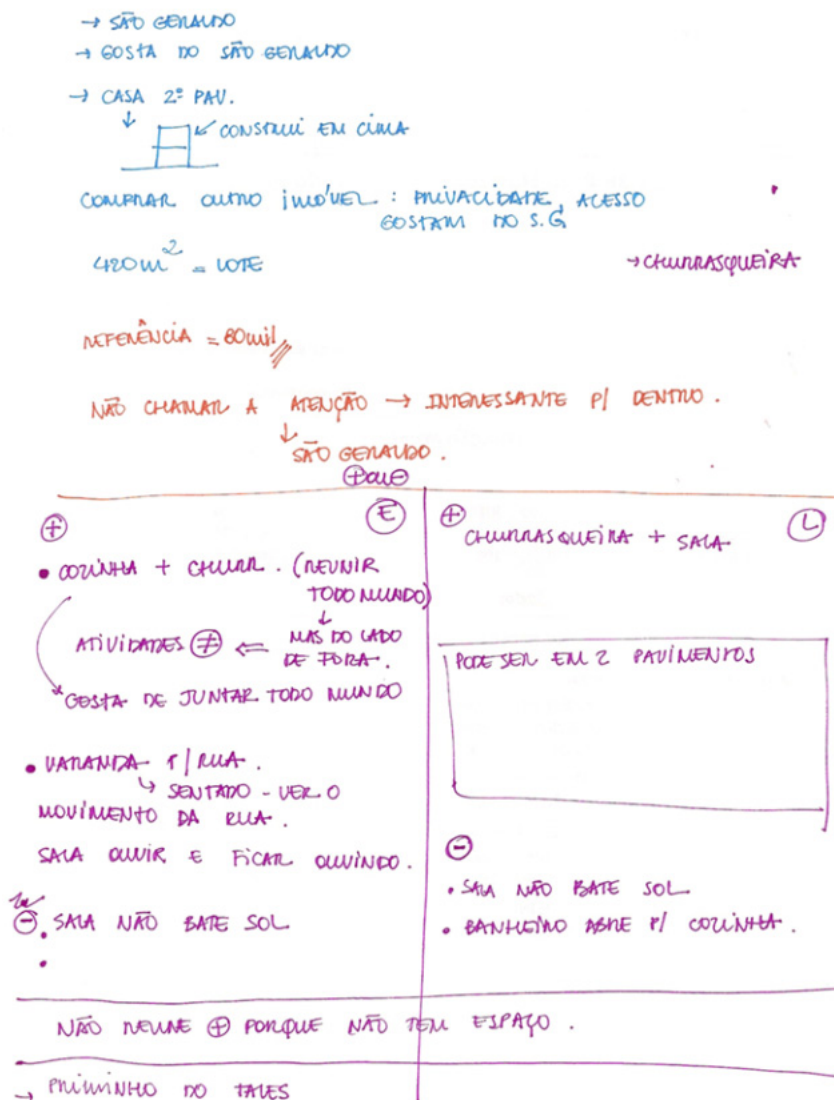 → SÃO GERALDO
→ GOSTA DO SÃO GERALDO
→ CASA 2º PAV.
CONSTRUI EM CIMA
COMPRAR OUTRO IMÓVEL : PRIVACIDADE, ACESSO
GOSTAM DO S.G
420m² = LOTE
→ CHURRASQUEIRA
REFERÊNCIA = 80mil
NÃO CHAMAR A ATENÇÃO → INTERESSANTE P/ DENTRO.
↓
SÃO GERALDO.
⊕ OU ⊖
⊕ Ⓔ
• COZINHA + CHURR. (REUNIR
TODO MUNDO)
↓
ATIVIDADES ≠ ⇐ MAS DO LADO
DE FORA.
GOSTA DE JUNTAR TODO MUNDO
• VARANDA P/ RUA.
↳ SENTADO - VER O
MOVIMENTO DA RUA.
SALA OUVIR E FICAR OUVINDO.
⊖ • SALA NÃO BATE SOL
•
⊕ Ⓛ
CHURRASQUEIRA + SALA
PODE SER EM 2 PAVIMENTOS
⊖
• SALA NÃO BATE SOL
• BANHEIRO ABRE P/ COZINHA.
NÃO REUNE ⊕ PORQUE NÃO TEM ESPAÇO.
→ PRIMINHO DO TALES